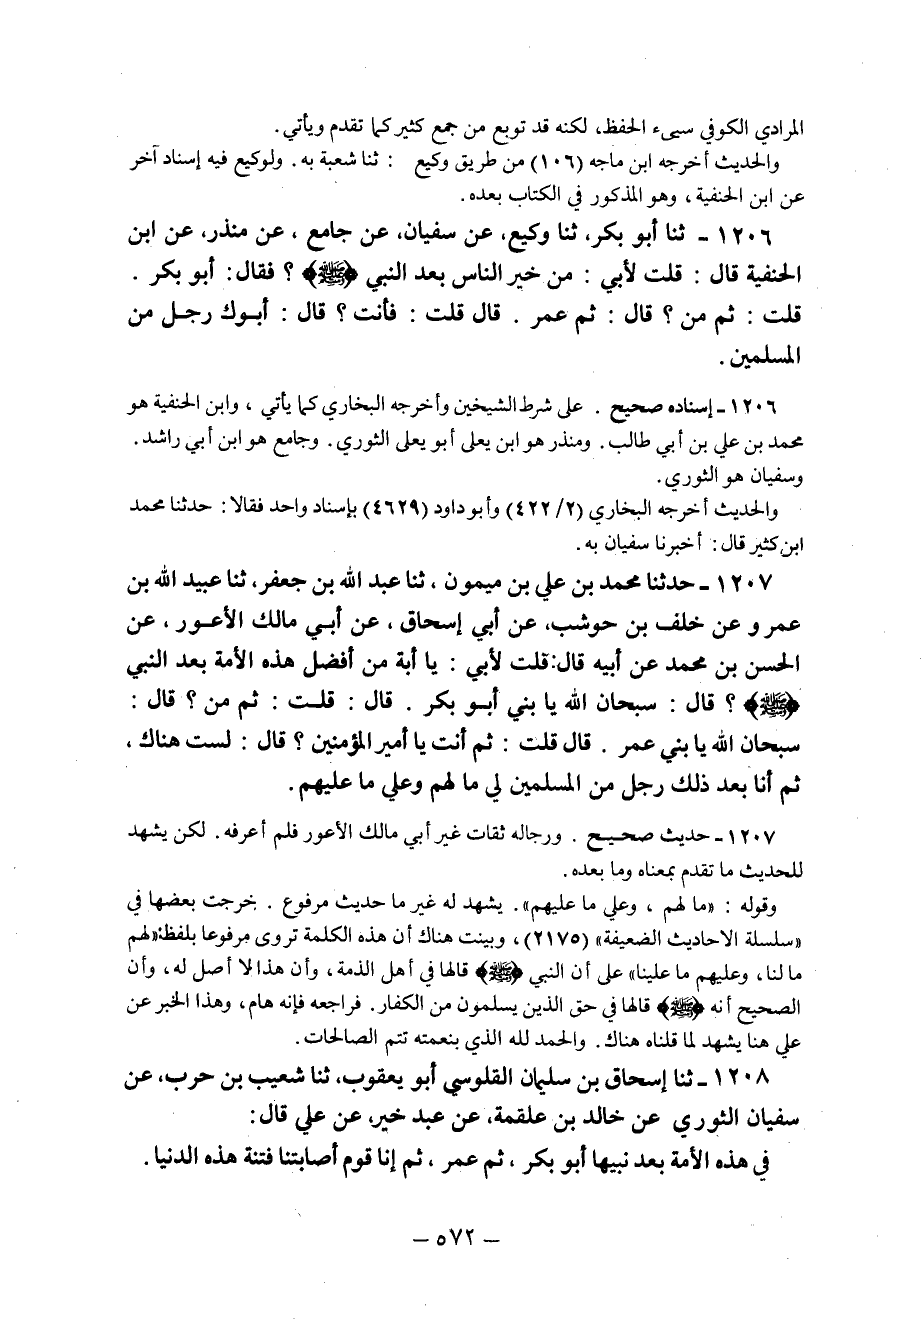 المرادي الكوفي سيىء الحفظ، لكنه قد توبع من جمع كثير كما تقدم ويأتي.
والحديث أخرجه ابن ماجه (١٠٦) من طريق وكيع : ثنا شعبة به. ولوكيع فيه إسناد آخر
عن ابن الحنفية، وهو المذكور في الكتاب بعده.
١٢٠٦ - ثنا أبو بكر، ثنا وكيع، عن سفيان، عن جامع ، عن منذر، عن ابن
الحنفية قال : قلت لأبي : من خير الناس بعد النبي ﴿ﷺ﴾ ؟ فقال: أبو بكر .
قلت : ثم من ؟ قال : ثم عمر . قال قلت : فأنت ؟ قال : أبوك رجل من
المسلمين .
١٢٠٦ - إسناده صحيح . على شرط الشيخين وأخرجه البخاري كما يأتي ، وابن الحنفية هو
محمد بن علي بن أبي طالب. ومنذر هو ابن يعلى أبو يعلى الثوري. وجامع هو ابن أبي راشد.
وسفيان هو الثوري.
والحديث أخرجه البخاري (٤٢٢/٢) وأبو داود (٤٦٢٩) بإسناد واحد فقالا: حدثنا محمد
ابن كثير قال: أخبرنا سفيان به.
١٢٠٧ - حدثنا محمد بن علي بن ميمون ، ثنا عبد الله بن جعفر، ثنا عبيد الله بن
عمرو عن خلف بن حوشب، عن أبي إسحاق ، عن أبي مالك الأعور ، عن
الحسن بن محمد عن أبيه قال: قلت لأبي : يا أبة من أفضل هذه الأمة بعد النبي
﴿ﷺ﴾ ؟ قال : سبحان الله يا بني أبو بكر . قال : قلت : ثم من ؟ قال :
سبحان الله يا بني عمر . قال قلت : ثم أنت يا أمير المؤمنين ؟ قال : لست هناك ،
ثم أنا بعد ذلك رجل من المسلمين لي ما لهم وعلي ما عليهم.
١٢٠٧ - حديث صحيح . ورجاله ثقات غير أبي مالك الأعور فلم أعرفه. لكن يشهد
للحديث ما تقدم بمعناه وما بعده.
وقوله : «ما لهم ، وعلي ما عليهم». يشهد له غير ما حديث مرفوع . خرجت بعضها في
«سلسلة الاحاديث الضعيفة» (٢١٧٥)، وبينت هناك أن هذه الكلمة تروى مرفوعا بلفظ: «لهم
ما لنا، وعليهم ما علينا» على أن النبي ﴿ﷺ﴾ قالها في أهل الذمة، وأن هذا لا أصل له، وأن
الصحيح أنه ﴿ﷺ﴾ قالها في حق الذين يسلمون من الكفار. فراجعه فإنه هام، وهذا الخبر عن
علي هنا يشهد لما قلناه هناك. والحمد لله الذي بنعمته تتم الصالحات.
١٢٠٨ - ثنا إسحاق بن سليمان القلوسي أبو يعقوب، ثنا شعيب بن حرب، عن
سفيان الثوري عن خالد بن علقمة، عن عبد خير، عن علي قال:
في هذه الأمة بعد نبيها أبو بكر ، ثم عمر ، ثم إنا قوم أصابتنا فتنة هذه الدنيا.
– ٥٧٢ –